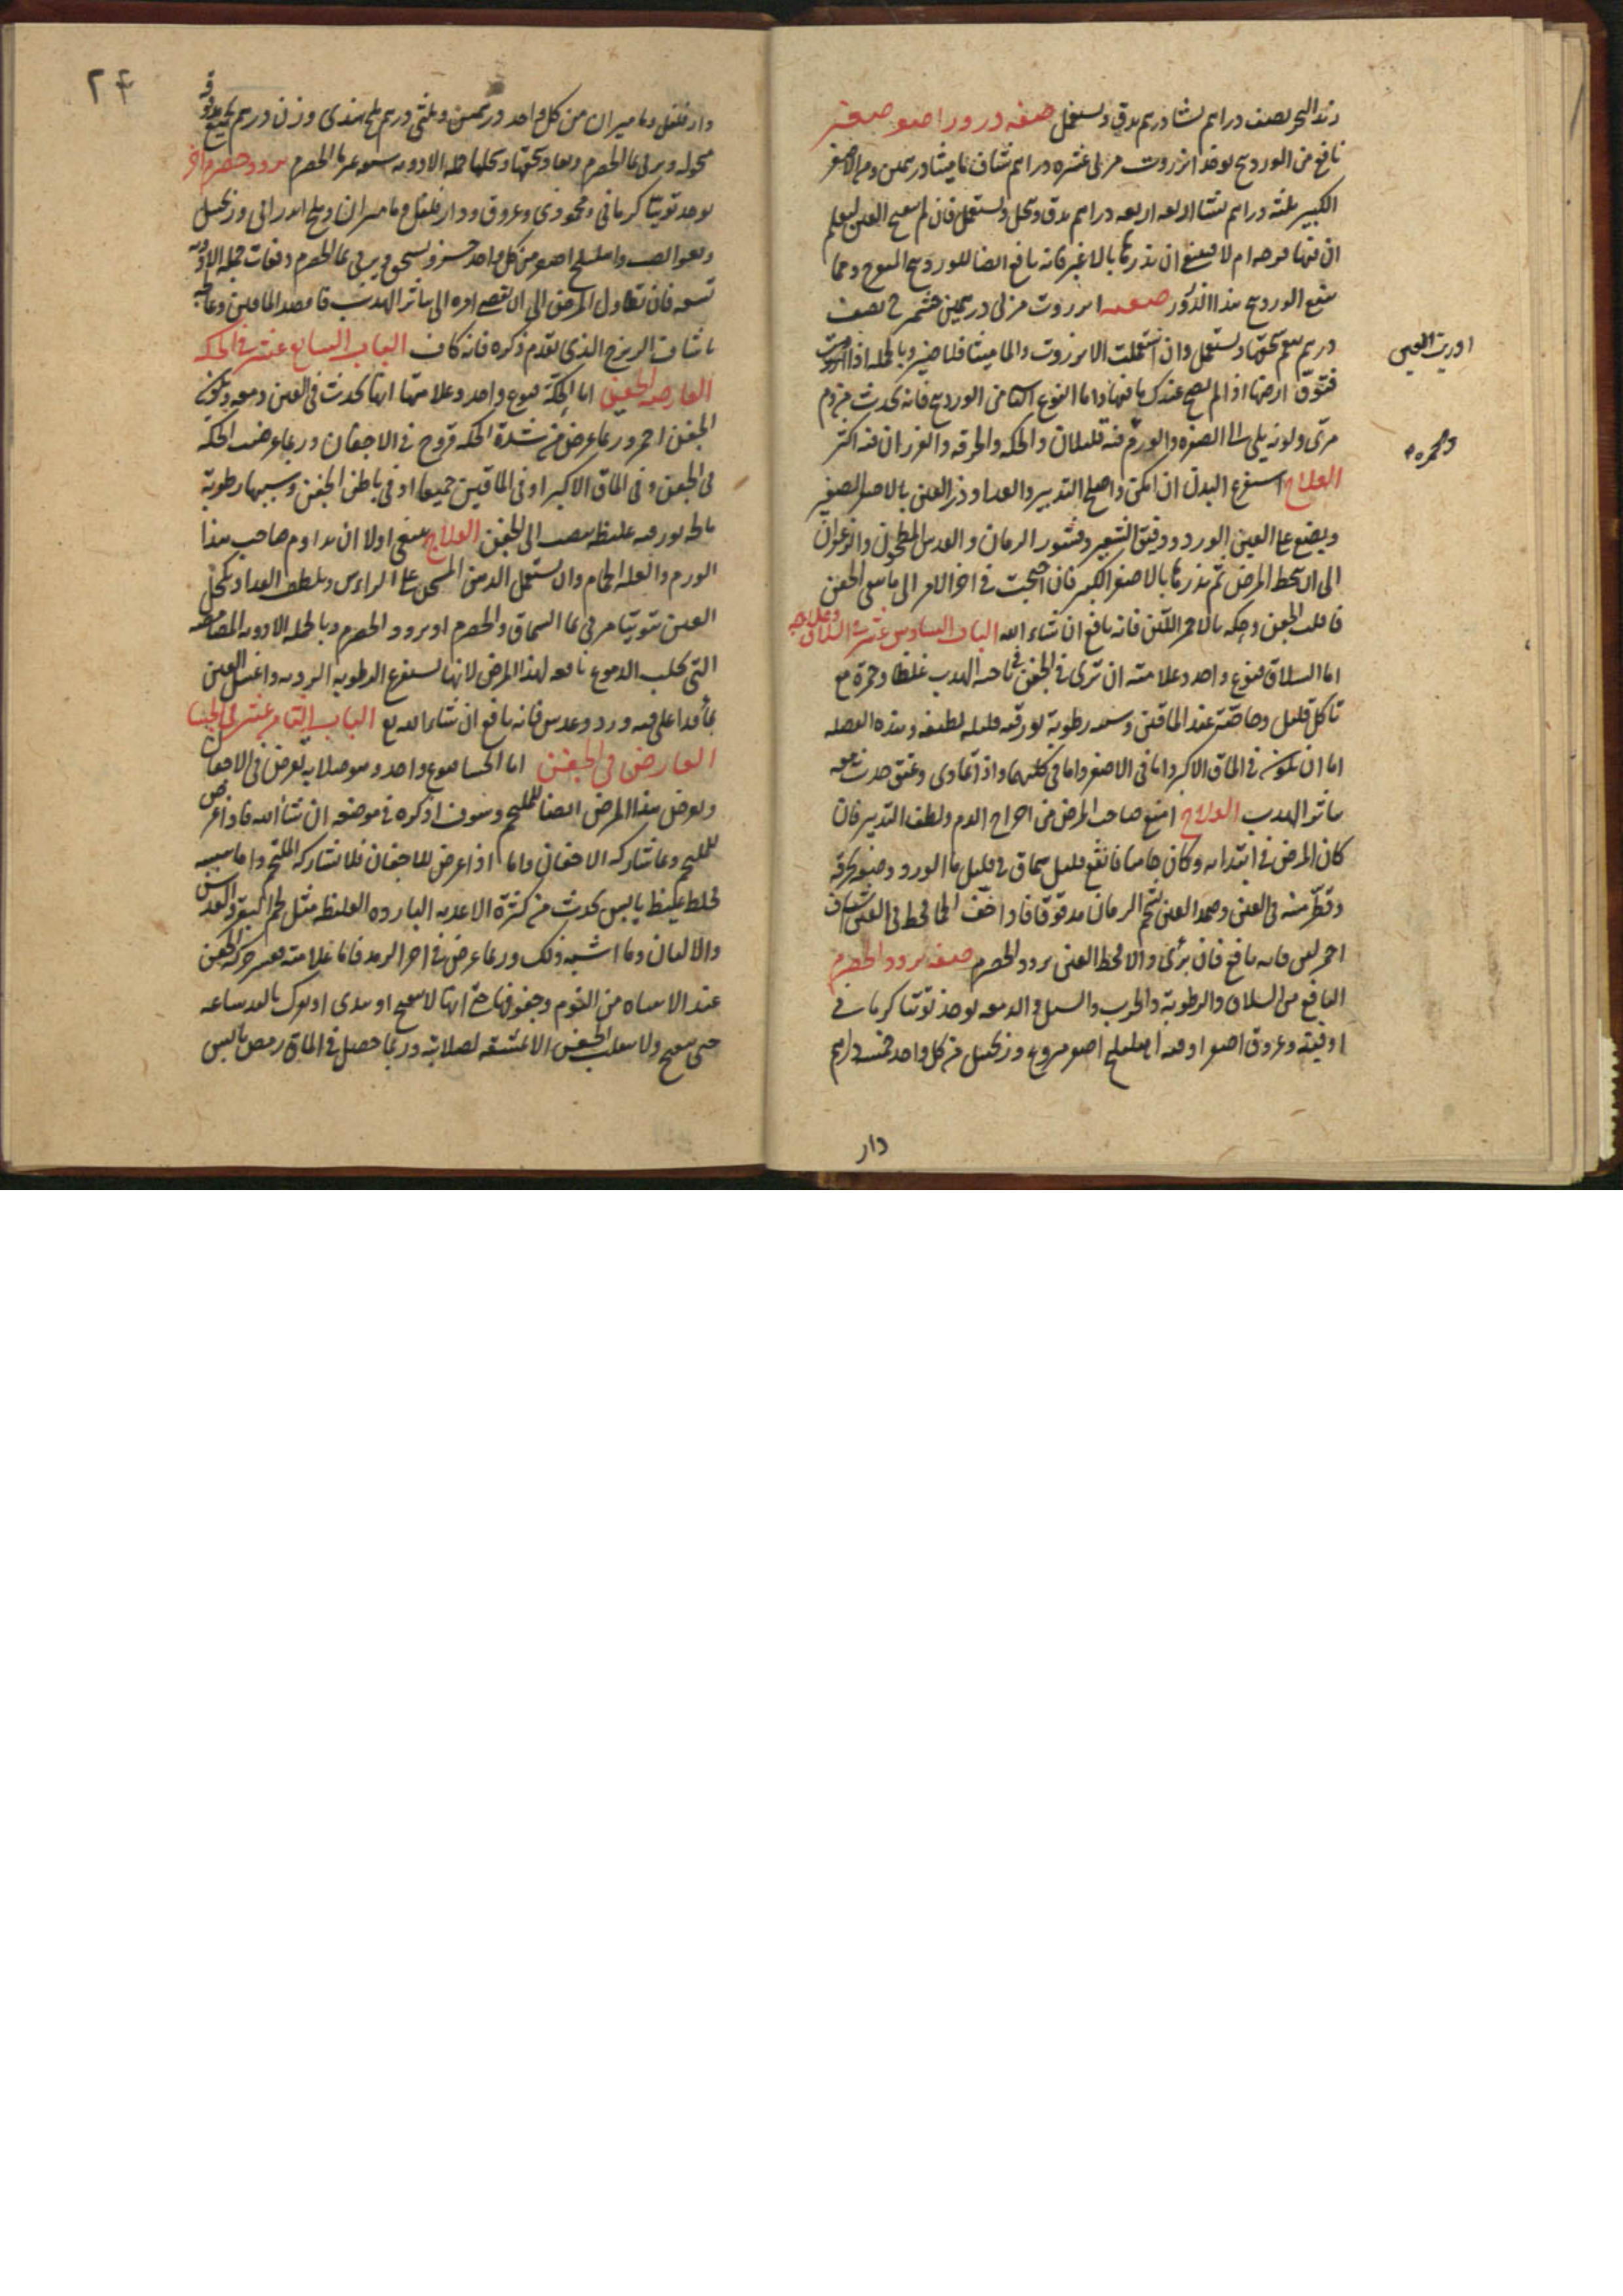 زبد البحر نصف دراهم نشا درهم يدق ويستعمل صفه درور اصفر صغير
نافع من الوردينج يوخذ انزروت مربى عشره دراهم شياف ماميثا درهمين ومن الاصفر
الكبير ثلثه دراهم نشا اربعه دراهم يدق وينخل ويستعمل فان لم تنفتح العين ليعلم
ان فيها قرحه ام لا فينبغي ان تذرها بالاغبر فانه نافع ايضا للوردينج ومما
ينفع الوردينج هذا الذرور صفته انزروت مربى درهمين نصف
درهم ينعم سحقها ويستعمل وان استعملت الانزروت والماميثا فلا ضير وبالجمله اذا
فتوق ارضها اذا لم يصح عندك ما فيها واما النوع الثاني الوردينج فانه يحدث من دم
مرى ولونه يلي الى الصفره والورم فيه قليلان والحكه والحرقه والغرزان فيه اكثر
العلاج استفرغ البدن ان امكن واصلح التدبير والغدا وذر العين بالاصفر الصغير
ويضع على العين الورد ودقيق الشعير وقشور الرمان والعدس المطحون والزعفران
الى ان ينحط المرض ثم تذرها بالاصفر الكبير فان احتجت في اخر الامر الى
فاقلب الجفن وحكه بالاحمر اللين فانه نافع ان شاء الله الباب السادس عشر في السلاق وعلاجه
اما السلاق فنوع واحد وعلامته ان ترى في الجفن في ناحية الهدب غلظا وحمرة مع
تاكل قليل وخاصة عند الماقين وسببه رطوبة بورقيه قليله لطيفه وهذه الفضله
اما ان تكون في الماق الاكبر واما في الاصغر واما في كلهما واذا تمادى وعتق حدث معه
سائر الهدب العلاج امنع صاحب المرض من اخراج الدم ولطف التدبير فان
كان المرض في ابتدايه وكان فانقع قليل سماق في قليل ما الورد وصفه بخرقه
وقطر منه في العين وضمد العين بشحم الرمان مدقوقا فاذا خف فخط في العين شياف
احمر لين فانه نافع فان برئ والا فخط العين برود الحصرم صفه برود الحصرم
النافع من السلاق والرطوبة والجرب والسبل والدمعه يوخذ توتيا كرماني
اوقيه وعروق اصفر اوقيه اهليلج اصفر منزوع وزنجبيل من كل واحد خمسه دراهم
دار
او ريت العين
وحمره
٢٤
دار فلفل وماميران من كل واحد درهمين وثلثي درهم ملح هندي وزن درهم الجميع مدقوقه
منخوله ويربى بما الحصرم ويعاد سحقها ونخلها جمله الادويه سبعه غير ما الحصرم برود حصرم اخر
يوخذ توتيا كرماني ومحمودي وعروق ودار فلفل وماميران وملح اندراني وزنجبيل
واهليلج اصفر من كل واحد جزو يسحق ويربى بما الحصرم دفعات جمله الادويه
تسعه فان تطاول المرض الى ان يفضي امره الى سائر الهدب فافصد الماقين
باشياف الزرنيخ الذي تقدم ذكره فانه كاف الباب السابع عشر في الحكه
العارضه للجفن اما الحكة فنوع واحد وعلامتها انها تحدث في العين دمعه وتكون
الجفن احمر وربما عرض من شدة الحكه قروح في الاجفان وربما عرضت الحكة
في الجفن وفي الماق الاكبر او في الماقين جميعا او في باطن الجفن وسببها رطوبة
مالحه بورقيه غليظه تنصب الى الجفن العلاج ينبغي اولا ان يداوم صاحب هذا
الورم والعله الحمام وان يستعمل الدهن المسخن على الراس ويلطف الغدا وتكحل
العين بتوتيا مربى بما السماق والحصرم او برود الحصرم وبالجمله الادويه
التي تجلب الدموع نافعه لهذا المرض لانها تستفرغ الرطوبه الرديه واغسل العين
بما قد اغلي فيه ورد وعدس فانه نافع ان شاء الله تع الباب الثامن عشر في الجسا
العارض في الجفن اما الجسا فنوع واحد وهو صلابه تعرض في الاجفان
ويعرض هذا المرض ايضا للملتحم وسوف اذكره في موضعه ان شا الله فاذا عرض
للملتحم وما شاركه الاجفان واما اذا عرض للاجفان فلا تشاركه الملتحم واما سببه
فخلط غليظ يابس يحدث من كثرة الاغديه البارده الغليظه مثل لحم البقر والعدس
والالبان وما اشبه ذلك وربما عرض في اخر الرمد فاما علامته فعسر حركه الجفن
عند الانتباه من النوم وجفوفها حتى انها لا تنفتح او تبدى او تعرك باليد ساعه
حتى تنفتح ولا ينقلب الجفن الا بمشقه لصلابته وربما حصل في الماق رمص يابس